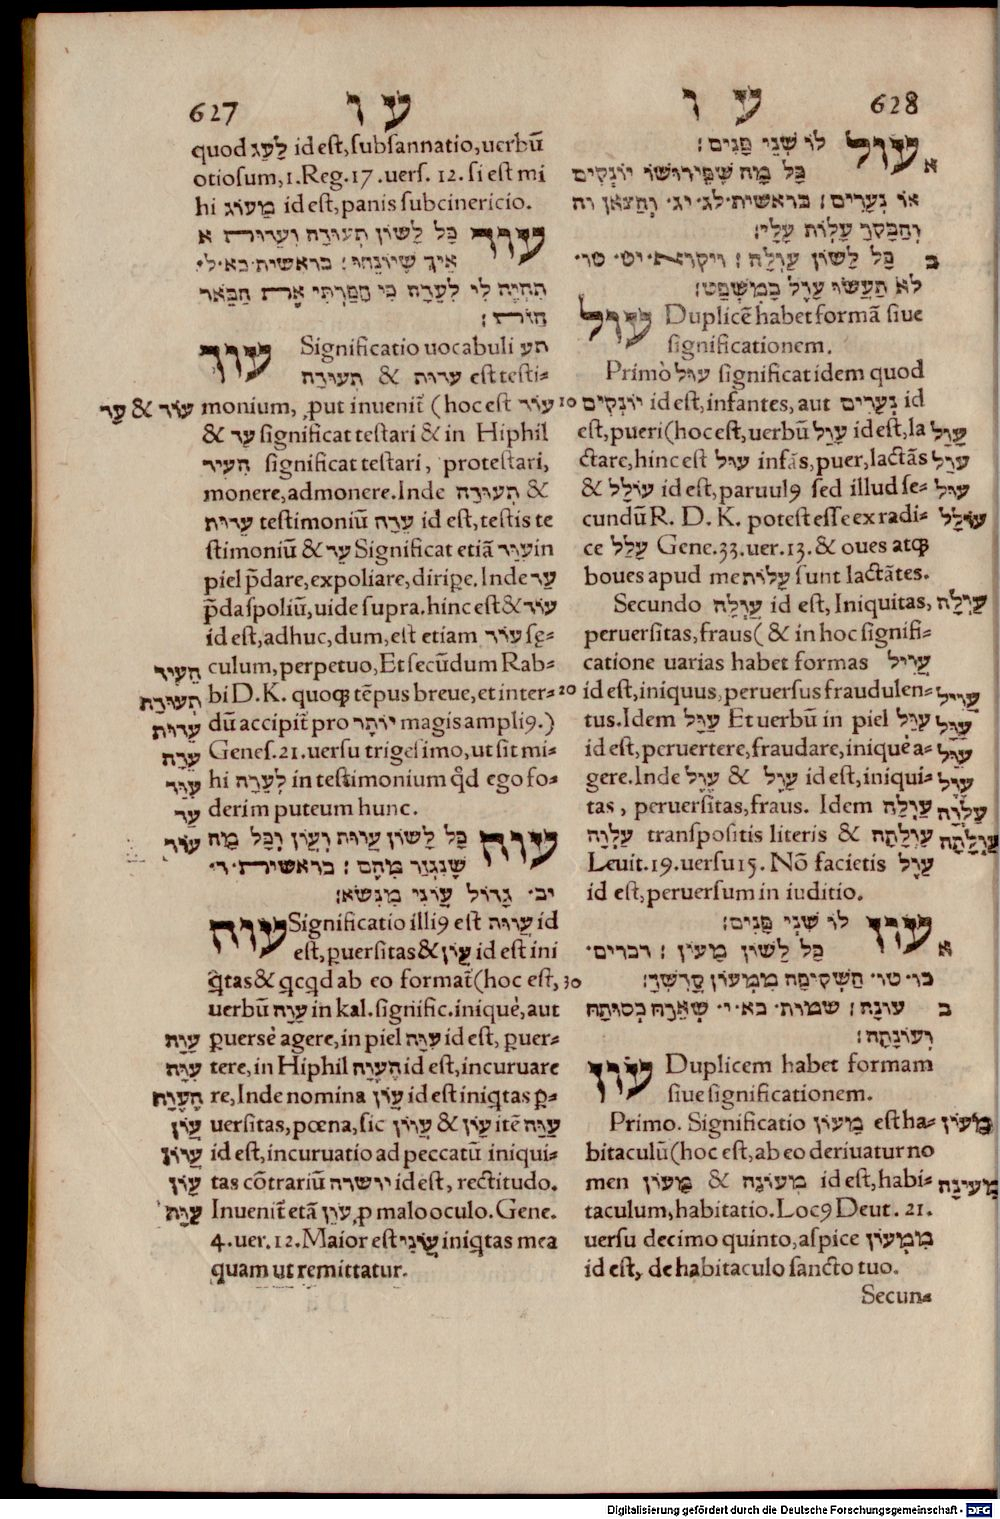 627
ע ו
quod לַעַג id est, subsannatio, uerbũ
otiosum, 1. Reg. 17. uers. 12. si est mi
hi מָעוֹג id est, panis subcinericio.
עוד כָּל לַשׁוֹן תְּעוּדָה וְעֵדוּת א
אֵיךְ
בראשית כא ל
תִּהְיֶה לִי לְעֵדָה כִּי חָפַרְתִּי אֶת הַבְּאֵר
הַזֹאת׃
עוד Significatio uocabuli תע
תְעוּדַה & עדות est testi-
עוֹד & עֵד monium, ꝓut inuenit̃ (hoc est עוֹד 10
& עֵד significat testari & in Hiphil
הֵעִיד significat testari, protestari,
monere, admonere. Inde תְּעוּדָה &
עֵדוּת testimoniũ עֵדָה id est, testis te
stimoniũ & עֵד Significat etiã עִוֵּד in
piel p̃dare, expoliare, diripe. Inde עַד
p̃da spoliũ, uide supra. hinc est & עוֹד
id est, adhuc, dum, est etiam עוֹד sę-
הֵעִיד culum, perpetuo, Et secũdum Rab-
תְּעוּדָה bi D. K. quoqꝫ tẽpus breue, et inter- 20
עֵדוּת dũ accipit̃ pro יוֹתֵר magis ampliꝰ.)
עֵדָה Genes. 21. uersu trigesimo, ut sit mi-
עִוֵּד hi לְעֵדָה in testimonium q̃d ego fo-
עַד derim puteum hunc.
עוֹד
עוה כַּל לַשׁוֹן עֲוּוֹת וְעָוֹן וְכַל מַה
שֶׁנִגְזַר מֵהֶם׃ בראשית ד
יב גָּדוֹל עֲוֹנִי מִנְּשׂא׃
עוה Significatio illiꝰ est עֲוּוֹת id
est, ꝑuersitas & עָוֹן id est ini
q̃tas & qcqd ab eo format̃ (hoc est, 30
uerbũ עָוָה in kal. signific. iniquè, aut
עָוָה ꝑuersè agere, in piel עִוָּה id est, ꝑuer-
עִוָּה tere, in Hiphil הֶעֱוָה id est, incuruare
הֶעֱוָה re, Inde nomina עָוֹן id est iniqtas ꝑ-
עָוֹן uersitas, pœna, sic עֲוֹון & עָוֹן itẽ עַוָּה
עֲוֹון id est, incuruatio ad peccatũ iniqui-
עָוֹן tas cõtrariũ יושרה id est, rectitudo.
עַוָּה Inuenit̃ etã עוֹיֵן, ꝓ malo oculo. Gene.
4. uer. 12. Maior est עֲוֹנִי iniqtas mea
quam ut remittatur.
ע ו
628
עול לוֹ שְׁנֵי פָּנִים׃
א כָּל מָה שֶׁפֵּירוּשׁוֹ יוֹנְקִים
אוֹ נְעָרִים׃ בראשית לג יג וְהַצֹאן וה
וְהַבָּקָר עָלוֹת עָלָי׃
ב כָּל לַשׁוֹן עַוְלָה׃ ויקרא יט טו
לֹא תַעֲשׂוּ עָוֶל בַּמִשְׁפָּט׃
עול Duplicẽ habet formã siue
significationem.
Primò עול significat idem quod
יוֹנְקִים id est, infantes, aut נְעָרִים id
est, pueri (hoc est, uerbũ עָוַל id est, la עָוַל
ctare, hinc est עוּל infãs, puer, lactãs עוּל
& עוֹלֵל id est, paruulꝰ sed illud se- עוּל
cundũ R. D. K. potest esse ex radi- עוֹלֵל
ce עָלַל Gene. 33. uer. 13. & oues atqꝫ
boues apud me עָלוֹת sunt lactãtes.
Secundo עַוְלָה id est, Iniquitas, עַוְלָה
peruersitas, fraus (& in hoc signifi-
catione uarias habet formas עֲוִיל
id est, iniquus, peruersus fraudulen- עֲוִיל
tus. Idem עַוָּל Et uerbũ in piel עִוֵּל עַוָּל
id est, peruertere, fraudare, iniquè a- עִוֵּל
gere. Inde עָוֶל & עָוֶל id est, iniqui- עָוֶל
tas, peruersitas, fraus. Idem עַוְלָה עַלְוָה
עַלְוָה transpositis literis & עַוְלָתָה עַוְלָתָה
Leuit. 19. uersu 15. Nõ facietis עָוֶל
id est, peruersum in iuditio.
עון לוֹ שְׁנֵי פָּנִים׃
א כָּל לַשׁוֹן מָעוֹן׃ דברים
כו טו הַשְׁקִיפָה מִמְּעוֹן קָדְשֶׁךָ׃
ב עוֹנָה׃ שמות כא י שְׁאֵרָהּ כְּסוּתָהּ
וְעוֹנָתָהּ׃
עון Duplicem habet formam
siue significationem.
Primo. Significatio מָעוֹן est ha- מָעוֹן
bitaculũ (hoc est, ab eo deriuatur no
men מָעוֹן & מְעוֹנָה id est, habi- מְעוֹנָה
taculum, habitatio. Locꝰ Deut. 21.
uersu decimo quinto, aspice מִמְּעוֹן
id est, de habitaculo sancto tuo.
Secun-
Digitalisierung gefördert durch die Deutsche Forschungsgemeinschaft - DFG